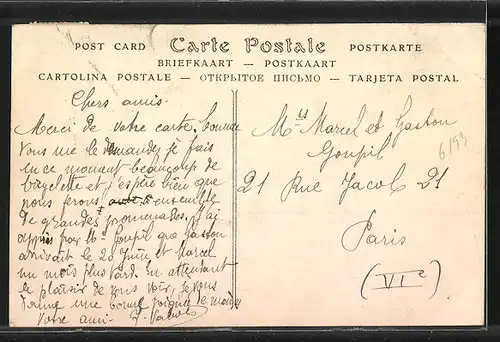 POST CARD Carte Postale POSTKARTE
BRIEFKAART — POSTKAART
CARTOLINA POSTALE — ОТКРЫТОЕ ПИСЬМО — TARJETA POSTAL
Chers amis.
Merci de votre carte. Comme
vous me le demandez je fais
en ce moment beaucoup de
bicyclette et j'espère bien que
nous ferons ensemble
de grandes promenades. J'ai
appris par Mme Goupil que Gaston
arrivait le 20 Juin et Marcel
un mois plus tard. En attendant
le plaisir de vous voir, je vous
donne une bonne poignée de mains
Votre ami
Mrs Marcel et Gaston
Goupil
21 Rue Jacob 21
Paris
(VIe)